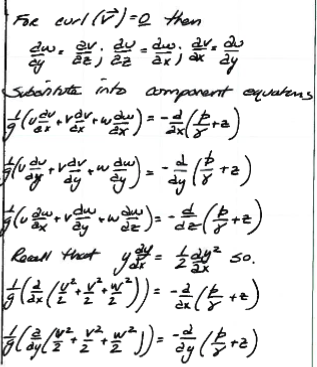 For curl (V⃗)=0 then
∂w/∂y = ∂v/∂z ; ∂u/∂z = ∂w/∂x ; ∂v/∂x = ∂u/∂y
Substitute into component equations
1/g (u ∂u/∂x + v ∂v/∂x + w ∂w/∂x) = -∂/∂x (p/γ + z)
1/g (u ∂u/∂y + v ∂v/∂y + w ∂w/∂y) = -∂/∂y (p/γ + z)
1/g (u ∂w/∂x + v ∂w/∂y + w ∂w/∂z) = -d/dz (p/γ + z)
Recall that y ∂y/∂x = 1/2 ∂y²/∂x so.
1/g (∂/∂x (u²/2 + v²/2 + w²/2)) = -∂/∂x (p/γ + z)
1/g (∂/∂y (u²/2 + v²/2 + w²/2)) = -∂/∂y (p/γ + z)